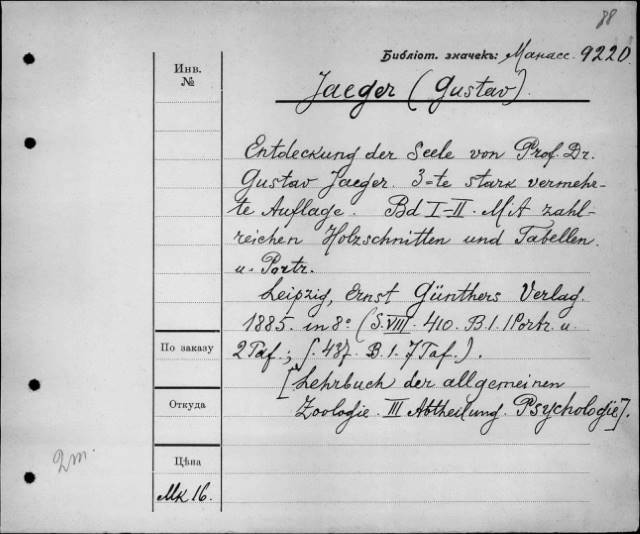 88
Библіот. значекъ: Манасс. 9220.
Инв.
№
Jaeger (Gustav).
Entdeckung der Seele von Prof. Dr.
Gustav Jaeger. 3=te stark vermehr-
te Auflage. Bd I-II. Mit zahl-
reichen Holzschnitten und Tabellen.
u. Portr.
Leipzig, Ernst Günthers Verlag.
1885. in 8º (S. VIII. 410. B. 1. 1 Portr. u.
2 Taf.; S. 437. B. 1. 7 Taf.).
[Lehrbuch der allgemeinen
Zoologie. III Abtheilung. Psychologie].
По заказу
Откуда
Цѣна
Мк 16.
2 т.